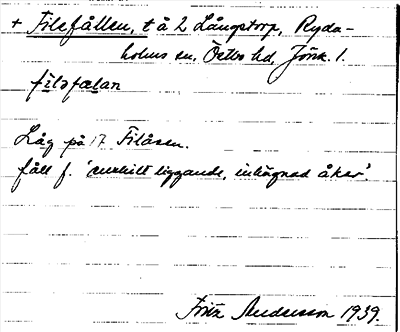 + Filefållen, t å 2 Långstorp, Ryda-
holms sn, Östbo hd, Jönk. l.
filəfælan
Låg på 17 Filåsen.
fåll f. 'enskilt liggande, inhägnad åker'.
Fritz Andersson 1939.